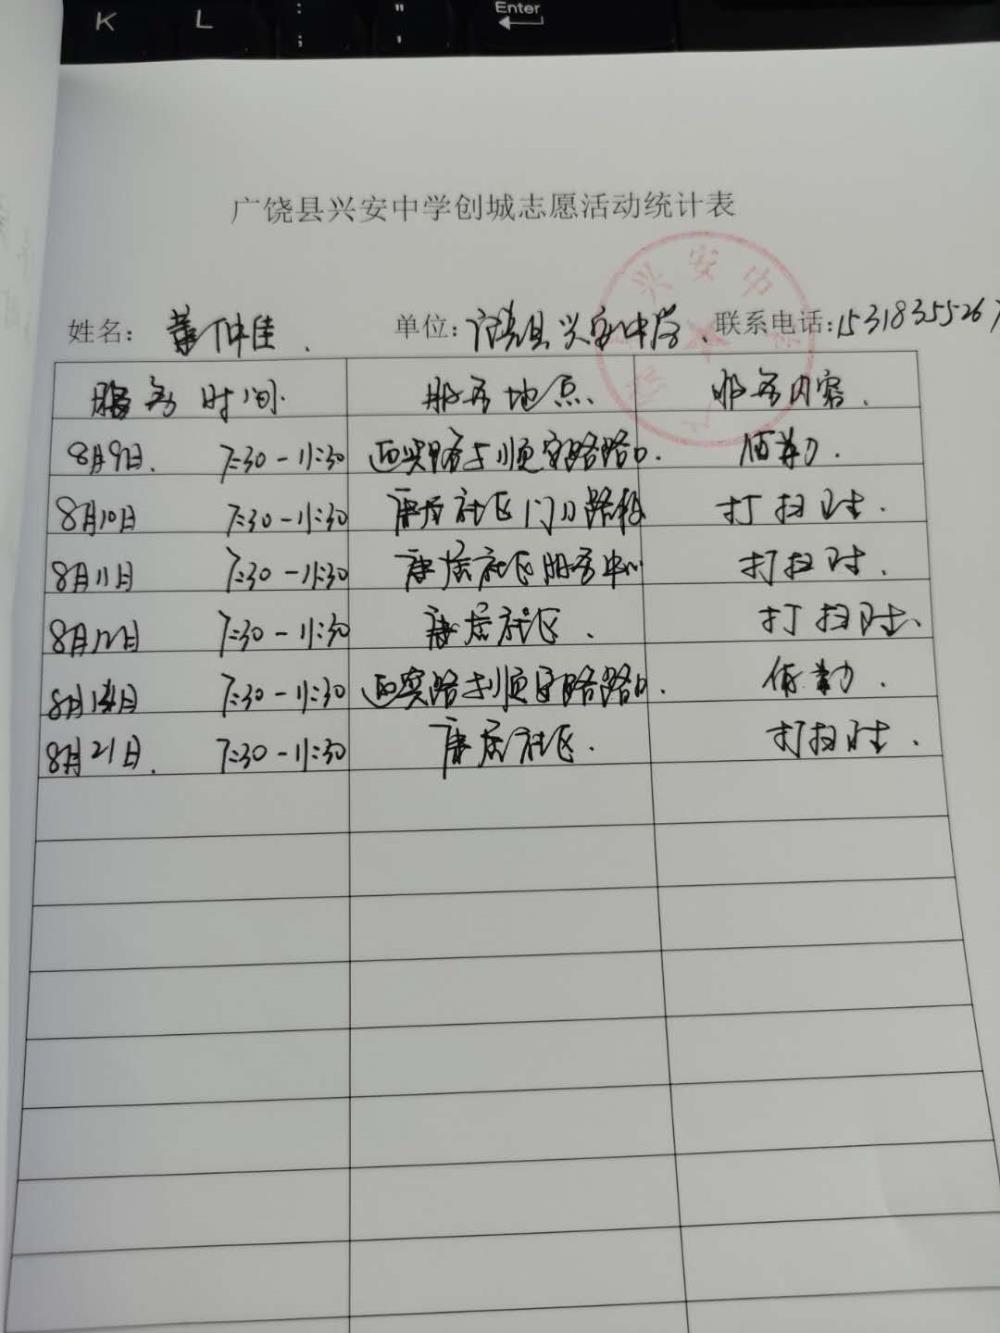 K L : ; " ' Enter
广饶县兴安中学创城志愿活动统计表
姓名： 董仲佳. 单位：广饶县兴安中学. 联系电话：15318355267
兴安中
服务时间. 服务地点. 服务内容.
8月9日. 7:30-11:30 路与顺安路路口. 值勤.
8月10日 7:30-11:30 康居社区门口路段 打扫卫生.
8月11日 7:30-11:30 康居社区服务中心 打扫卫生.
8月12日 7:30-11:30 康居社区. 打扫卫生.
8月14日 7:30-11:30 路与顺安路路口. 值勤.
8月21日. 7:30-11:30 康居社区. 打扫卫生.